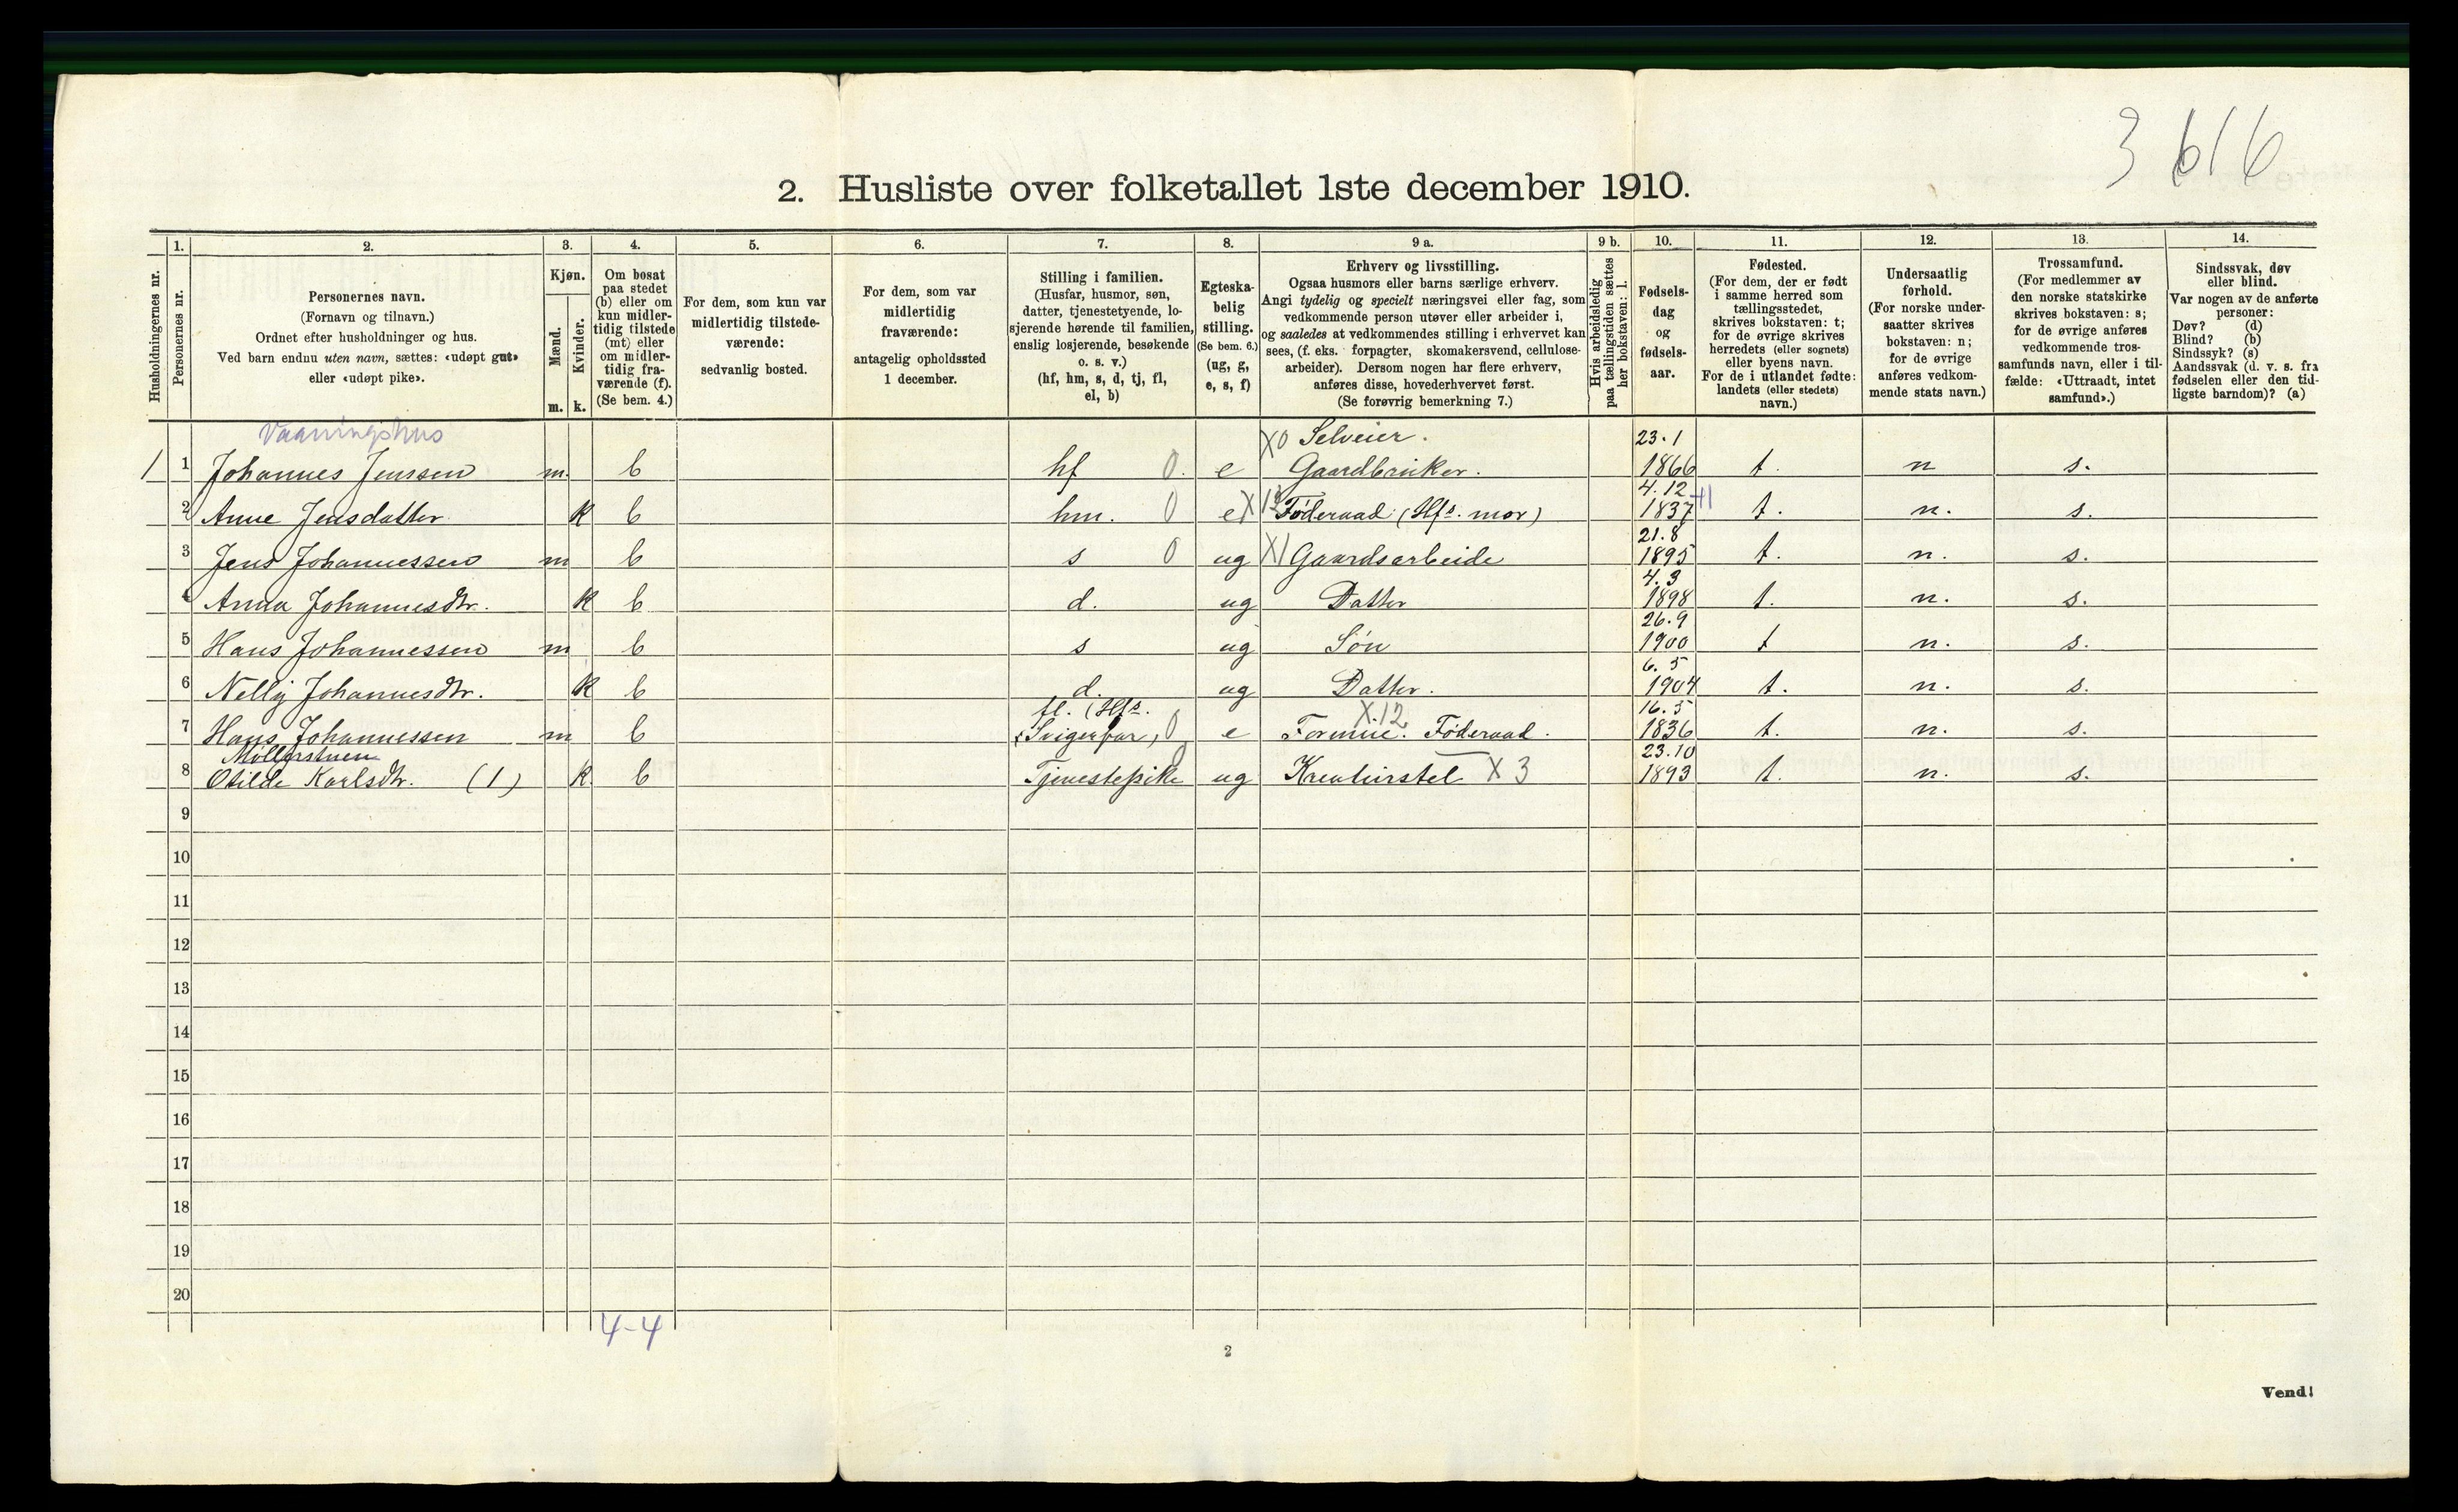 3 616
2. Husliste over folketallet 1ste december 1910.
Husholdningernes nr.
1.
Personernes nr.
2.
Personernes navn.
(Fornavn og tilnavn.)
Ordnet efter husholdninger og hus.
Ved barn endnu uten navn, sættes: «udøpt gut»
eller «udøpt pike».
3.
Kjøn.
Mænd.
m.
Kvinder.
k.
4.
Om bosat
paa stedet
(b) eller om
kun midler-
tidig tilstede
(mt) eller
om midler-
tidig fra-
værende (f).
(Se bem. 4.)
5.
For dem, som kun var
midlertidig tilstede-
værende:
sedvanlig bosted.
6.
For dem, som var
midlertidig
fraværende:
antagelig opholdssted
1 december.
7.
Stilling i familien.
(Husfar, husmor, søn,
datter, tjenestetyende, lo-
sjerende hørende til familien,
enslig losjerende, besøkende
o. s. v.)
(hf, hm, s, d, tj, fl,
el, b)
8.
Egteska-
belig
stilling.
(Se bem. 6.)
(ug, g,
e, s, f)
9 a.
Erhverv og livsstilling.
Ogsaa husmors eller barns særlige erhverv.
Angi tydelig og specielt næringsvei eller fag, som
vedkommende person utøver eller arbeider i,
og saaledes at vedkommendes stilling i erhvervet kan
sees, (f. eks. forpagter, skomakersvend, cellulose-
arbeider). Dersom nogen har flere erhverv,
anføres disse, hovederhvervet først.
(Se forøvrig bemerkning 7.)
9 b.
Hvis arbeidsledig
paa tællingstiden sættes
her bokstaven: l.
10.
Fødsels-
dag
og
fødsels-
aar.
11.
Fødested.
(For dem, der er født
i samme herred som
tællingsstedet,
skrives bokstaven: t;
for de øvrige skrives
herredets (eller sognets)
eller byens navn.
For de i utlandet fødte:
landets (eller stedets)
navn.)
12.
Undersaatlig
forhold.
(For norske under-
saatter skrives
bokstaven: n;
for de øvrige
anføres vedkom-
mende stats navn.)
13.
Trossamfund.
(For medlemmer av
den norske statskirke
skrives bokstaven: s;
for de øvrige anføres
vedkommende tros-
samfunds navn, eller i til-
fælde: «Uttraadt, intet
samfund».)
14.
Sindssvak, døv
eller blind.
Var nogen av de anførte
personer:
Døv? (d)
Blind? (b)
Sindssyk? (s)
Aandssvak (d. v. s. fra
fødselen eller den tid-
ligste barndom)? (a)
Vaaningshus
X0 Selveier. 23.1
1 1 Johannes Jenssen m. b hf 0. e Gaardbruker. 1866 t. n s.
4.12
2 Anne Jensdatter k b hm. 0 e X 12 Føderaad (Hfs. mor) 1837 t. n. s.
21.8
3 Jens Johannessen m b s 0 ug X1 Gaardsarbeide 1895 t. n. s.
4.3
4 Anna Johannesdtr. k b d. ug Datter 1898 t. n. s.
26.9
5 Hans Johannessen m b s ug Søn 1900 t n. s.
6.5
6 Nelly Johannesdtr. k b d. ug Datter. 1904 t. n. s.
fl. (Hfs. X.12 16.5
7 Hans Johannessen m b Svigerfar) 0 e Formue. Føderaad. 1836 t. n. s.
Møllerstuen 23.10
8 Otilde Karlsdtr. (1) k. b Tjenestepike 0 ug Kreaturstel X 3 1893 t. n. s.
9
10
11
12
13
14
15
16
17
18
19
20
4-4
2
Vend!